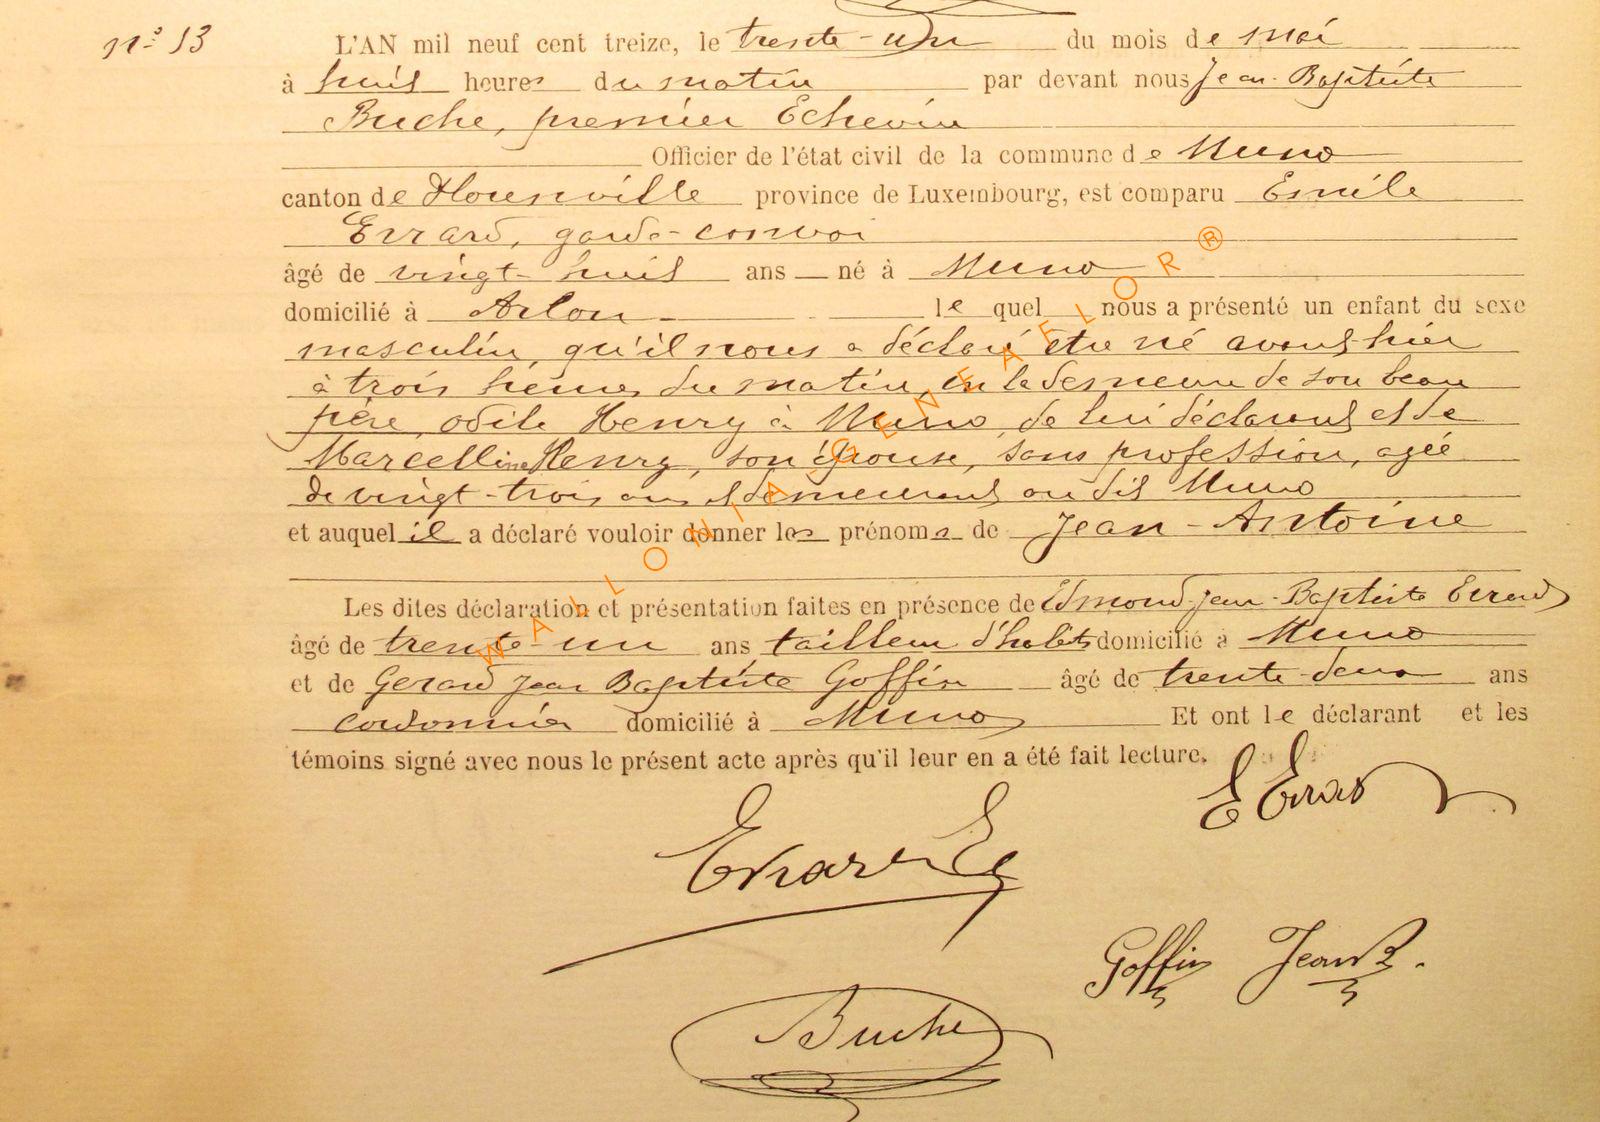 nº 13
L'AN mil neuf cent treize, le trente-un du mois de mai
à huit heures du matin par devant nous Jean-Baptiste
Buche, premier Echevin
Officier de l'état civil de la commune de Muno
canton de Florenville province de Luxembourg, est comparu Emile
Errard, garde-convoi
âgé de vingt-huit ans né à Muno
domicilié à Arlon lequel nous a présenté un enfant du sexe
masculin, qu'il nous a déclaré être né avant-hier
à trois heures du matin, en la demeure de son beau
père, odile Henry à Muno, de lui déclarant et de
Marcelline Henry, son épouse, sans profession, agée
de vingt-trois ans et demeurant au dit Muno
et auquel il a déclaré vouloir donner les prénoms de Jean-Antoine
Les dites déclaration et présentation faites en présence de Edmond Jean-Baptiste Errard
âgé de trente-un ans tailleur d'habits domicilié à Muno
et de Gerard Jean Baptiste Goffin âgé de trente-deux ans
cordonnier domicilié à Muno Et ont le déclarant et les
témoins signé avec nous le présent acte après qu'il leur en a été fait lecture.
E Errard
Errard E
Goffin Jean B.
Buche
WALLONIA-GENEAFLOR®